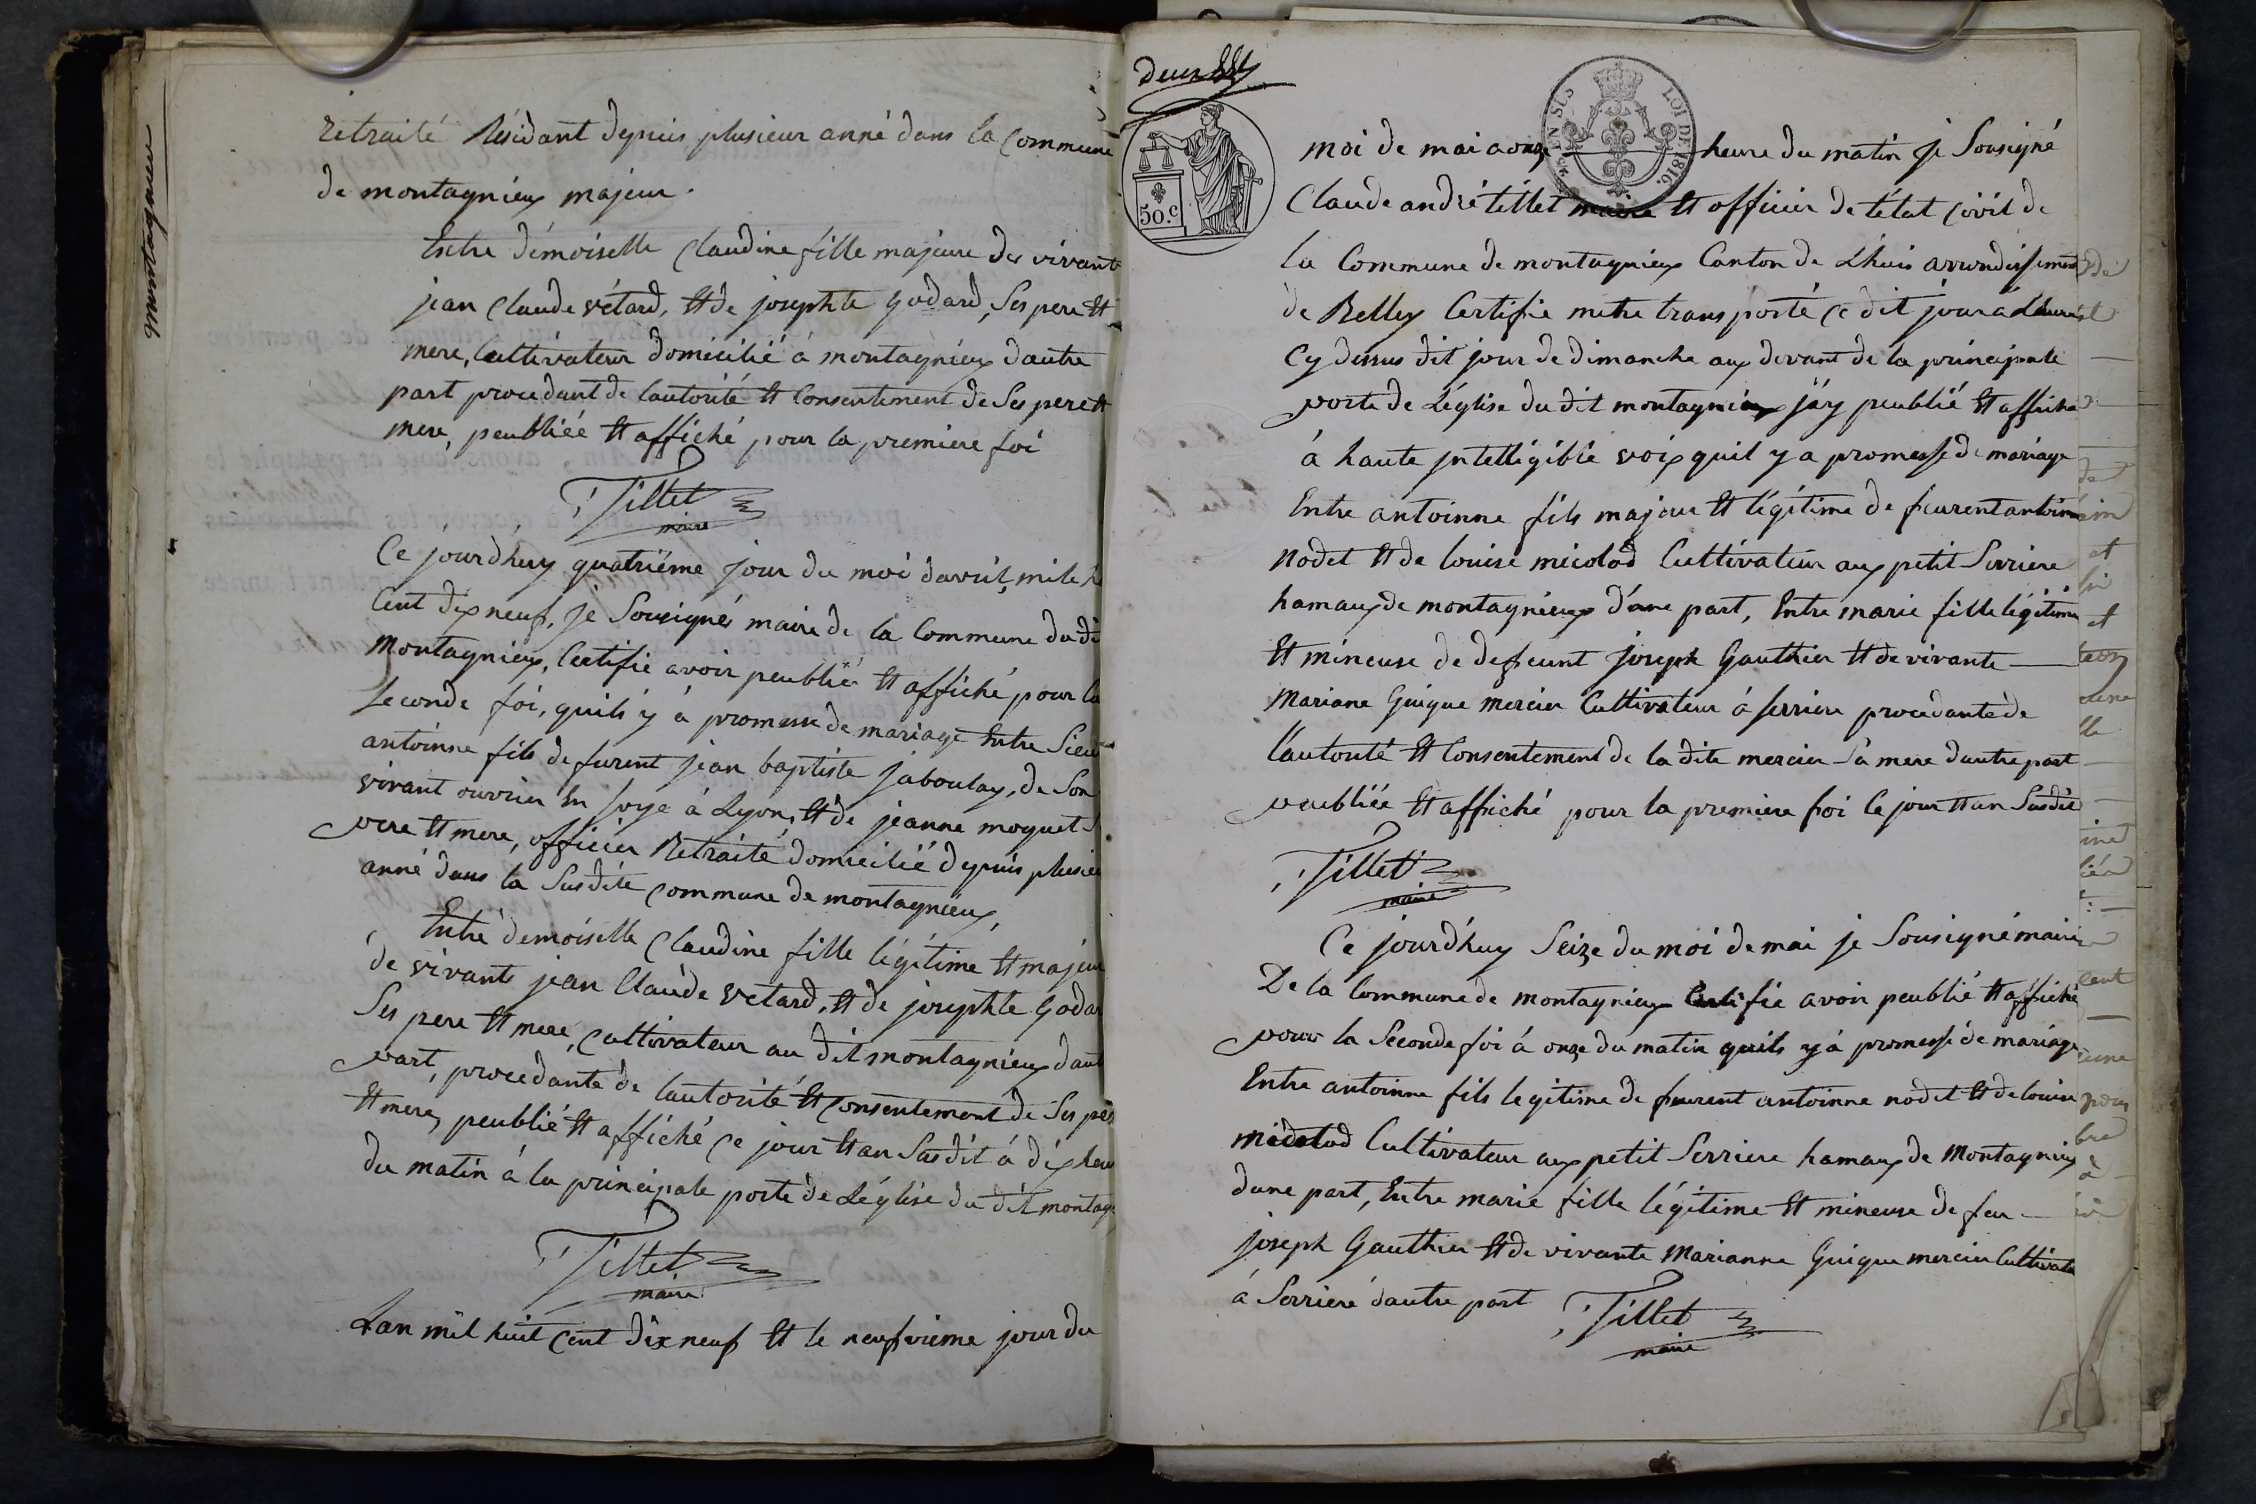 montagnieu
retraité Résidant depuis plusieur anné dans la Commune
de montagnieux majeur.
Entre démoiselle Claudine fille majeure des vivants
jean Claude vétard, et de josephte godard, Ses pere et
mere, Cultivateur domicilié à montagnieux dautre
part procedant de lautorité et Consentement de Ses pere et
mere, peubliée et affiché pour la premiere foi
Tillet
maire
Ce jourdhuy quatriéme jour du moi davril, mile h
Cent dix neuf, je Sousignés maire de la Commune du di
Montagnieux, Certifie avoir peublié et affiché pour la
Seconde foi, quils y à promesse de mariage Entre Sieur
antoinne fils defurent jean baptiste jaboulay, de Son
vivant ouvrier en soye à Lyon, et de jeanne moquet
pere et mere, officier Retraité domicilié depuis plusieu
anné dans la Susdite Commune de montagnieux,
Entre demoiselle Claudine fille légitime et majeur
de vivants jean Claude vetard, et de josephte Godar
Ses pere et mere, Cultivateur au dit montagnieux daut
part, procedante de lautorité et Consentement de Ses per
et mere, peublié et affiché Ce jour et an Susdit à dix heu
du matin à la principale porte de Léglise du dit montag
Tillet
maire
Lan mil huit Cent dix neuf et le neufvieme jour du
deux
50.c
LOI DE 1816.
moi de mai a onze heure du matin je Sousigné
Claude andré tillet maire et officier de létat Civil de
la Commune de montagnieux Canton de Lhuis arrondissement
de Belley Certifie metre transporté Ce dit jour à Lheure
Cy dessus dit jour de dimanche aux devant de la principale
porte de Léglise du dit montagnieux jäy peublié et affiché
à haute jntelligible voix quil y a promesse de mariage
Entre antoinne fils majeur et légitime de feurent antoinne
nodet et de louise micolod Cultivateur aux petit Serriere
hamaux de montagnieux d'une part, Entre marie fille légitime
et mineuse de defeunt joseph Gauthier et de vivante
Mariane Guigue mercier Cultivateur à serriere procedante de
l'autorité et Consentement de la dite mercier Sa mere dautre part
peubliée et affiché pour la premiere foi le jour et an Susdit
Tillet
maire
Ce jourdhuy Seize du moi de mai je Sousigné maire
De la Commune de montagnieux Certifie avoir peublié et affiché
pour la Seconde foi à onze du matin quils y à promesse de mariage
Entre antoinne fils legitime de feurent antoinne nodet et de louise
micolod Cultivateur aux petit Serriere hamaux de Montagnieux
dune part, Entre marie fille légitime et mineuse de feu
joseph Gauthier et de vivante Marianne Guigue mercier Cultivate
à Serriere dautre part
Tillet
maire